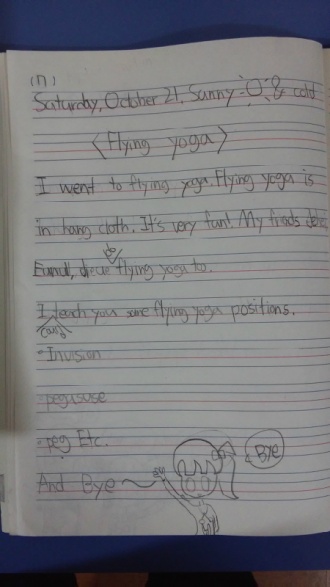 (17)
Saturday, October 21, Sunny & cold
<Flying yoga>
I went to flying yoga. Flying yoga is
in hang cloth. It's very fun! My frieds
do
flying yoga to.
I teach you some flying yoga positions.
can
- Invision
- pegasuse
- peg Etc.
And Bye
Bye